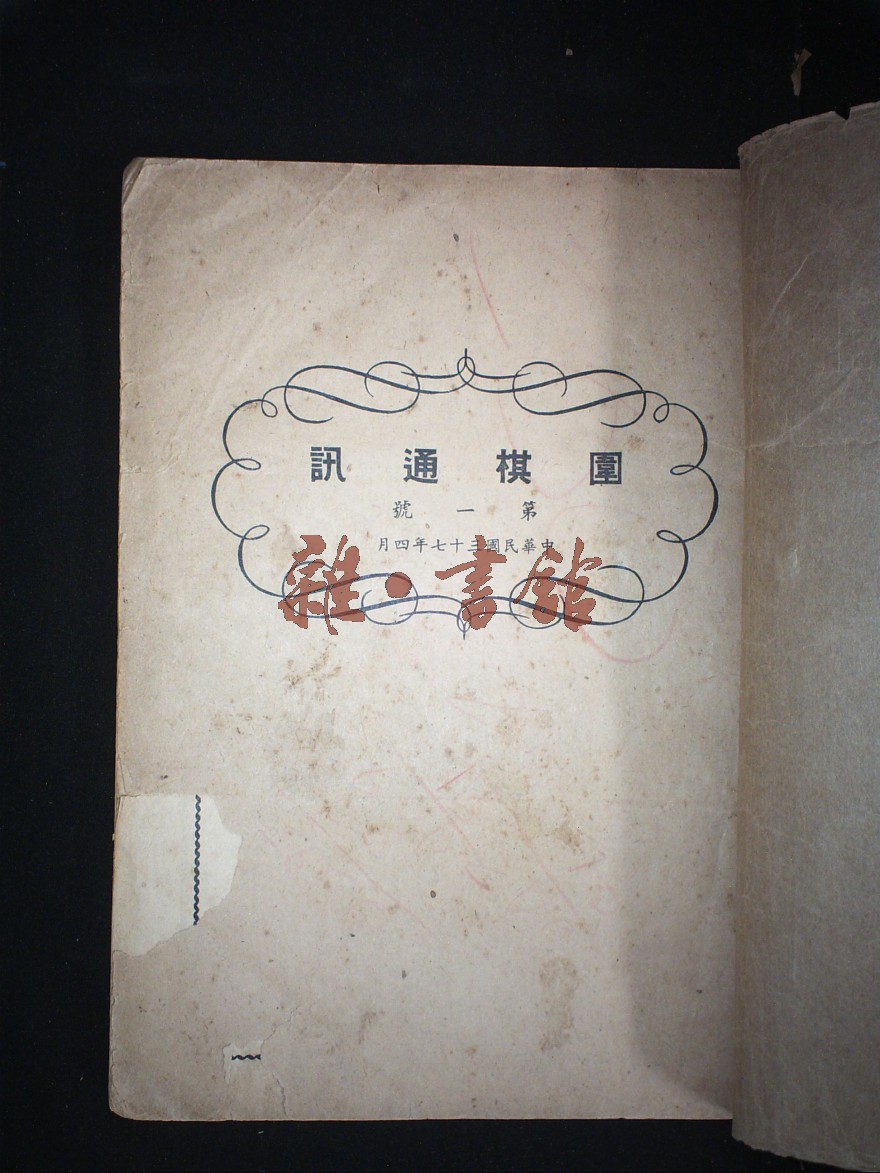 圍棋通訊
第一號
中華民國三十七年四月
雜·書館